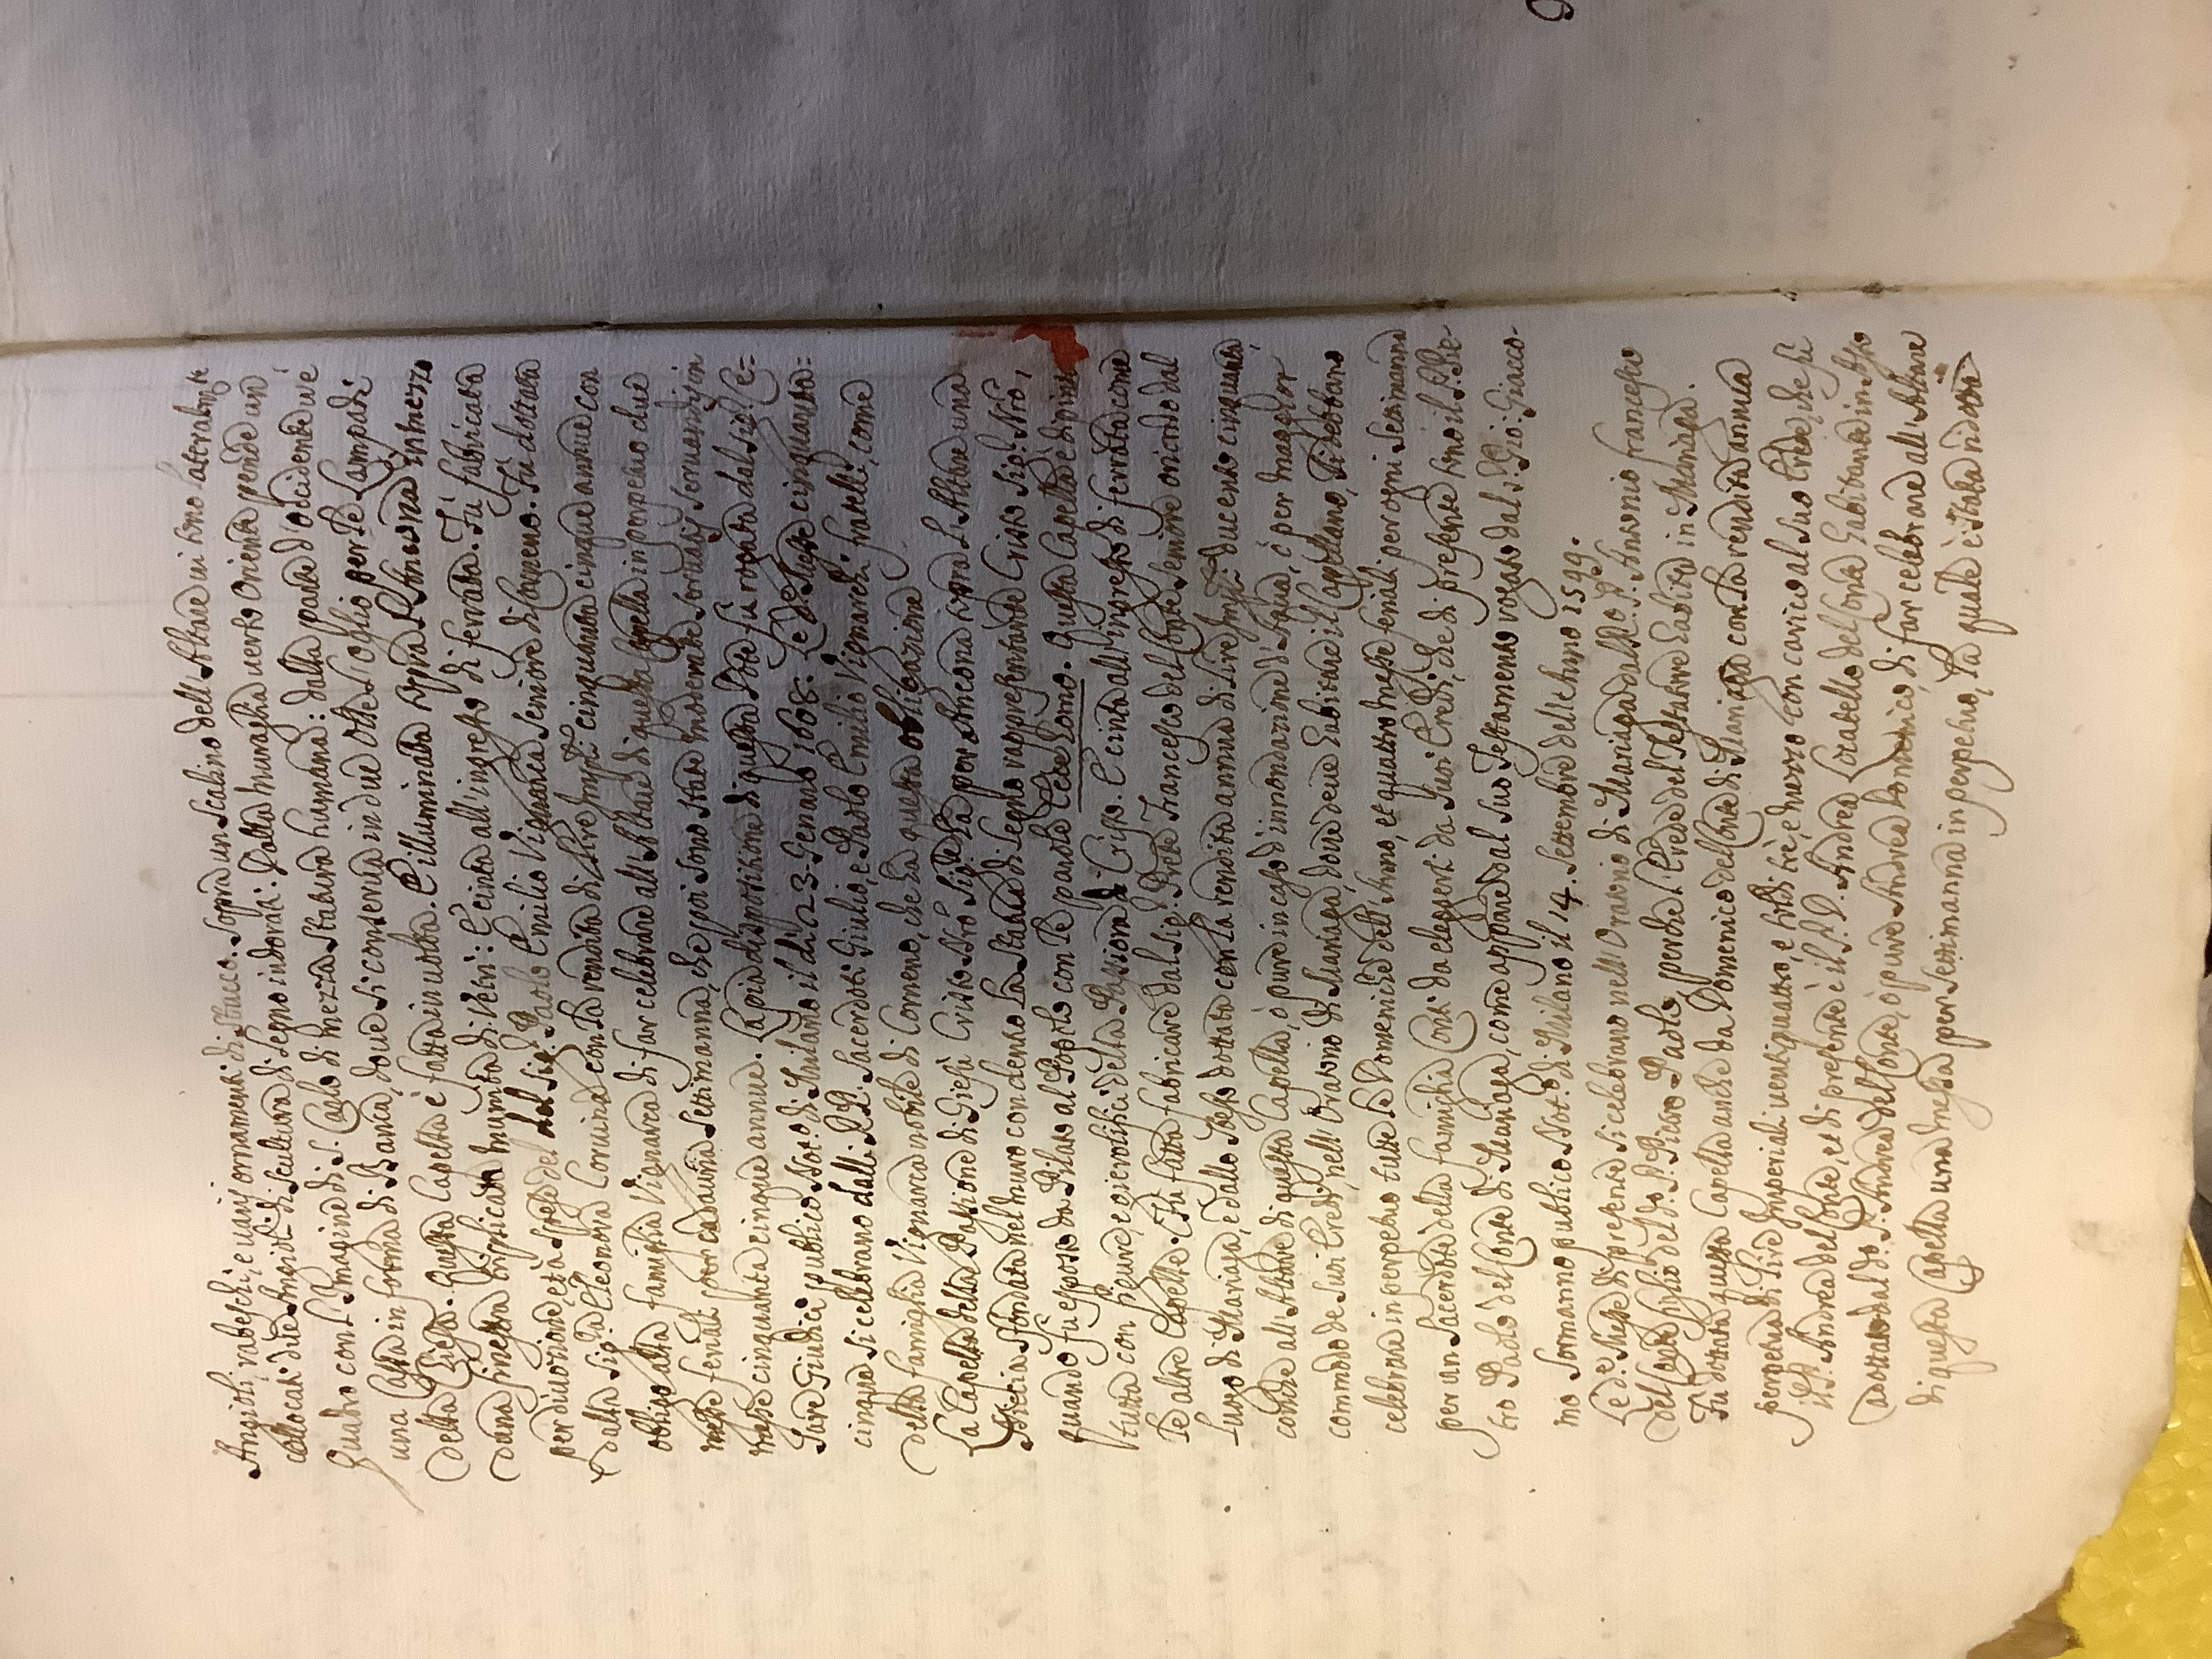 Angioli, rabeschi, e varij ornamenti di stucco. Sopra un Scalino dell'Altare vi sono lateralm.te
collocati due Angioli di Scultura di Legno indorati: Dalla muraglia verso Oriente pende un
Quadro con l'Imagine di S. Carlo di mezza Statura humana: dalla parte d'Occidente vi è
una Cassa in forma di Banca, dove si conserva in due Olle l'oglio per le Lampadi
della Chiesa. Questa Capella è fatta in volta. È illuminata sopra l'Ancona in mezzo
d'una finestra triplicata munita di Vetri: È cinta all'ingresso di ferrata. Fù fabricata
per divotione, et à spese del dal Sig.r Paolo Emilio Vignarca Seniore di Comeno. Fù dottata
dalla Sig.ra Eleonora Corvina con la rendita di Lire Imp.li cinquanta cinque annue con
obligo alla famiglia Vignarca di far celebrare all'Altare di questa Capella in perpetuo due
messe feriali per cadauna Settimana, che poi sono state moderate
messe cinquanta cinque annue. La pia dispositione di questa Dote fù rogata dal Sig.r Ce=
sare Giudici publico Not.o di Milano il dì 23. Genaro 1608. Le d.e Messe cinquanta=
cinque si celebrano dalli RR. Sacerdoti Giulio, e Paolo Emilio Vignarchi fratelli, come
della famiglia Vignarca nobile di Comeno, che hà questa obligazione
La Capella della Passione di Giesù Cristo N.ro Sig.re hà per Ancona sopra l'Altare una
Nicia sfondata nel muro con dentro la Statua di Legno rappresentante Cristo Sig.r N.ro,
quando fu esposto da Pilato al Popolo con le parole Ecce Homo. Questa Capella è dipinta
tutta con figure, e gieroglifici della Passione di Cristo. È cinta all'ingresso di ferrata come
le altre Capelle. Fù fatta fabricare dal Sig.r Prete Francesco del Conte Seniore oriondo dal
Luogo di Mariaga, e dallo stesso dottata con la rendita annua di Lire Imp.li ducento cinquanta,
con che all'Altare di questa Capella, ò pure in caso d'innondazione d'Aqua, ò per maggior
commodo de suoi Eredi, nell'Oratorio di Mariaga, dove deve habitare il Capellano, si debbano
celebrare in perpetuo tutte le Domeniche dell'Anno, et quattro messe feriali per ogni Settimana
per un Sacerdote della famiglia Conti da eleggersi da suoi Eredi, che di presente sono il S. Pie-
tro Paolo del Conte di Mariaga, come appare dal suo Testamento rogato dal S. Gio: Giaco-
mo Sormanno publico Not.o di Milano il 14. Settembre dell'Anno 1599.
Le d.e Messe di presente si celebrano nell'Oratorio di Mariaga dal R.do P. Antonio Francesco
del Conte figlio del do. S. Pietro Paolo, perche l'Erede del Testatore habita in Mariaga.
Fù dottata questa Capella anche da Domenico del Conte di Mariaga con la rendita annua
perpetua di Lire Imperiali ventiquattro, e soldi trè, e mezzo con carico al suo Erede, che fù
il S. Andrea del Conte, et di presente è il S. D. Andrea Carabello del Conte habitante in Asso
adottato dal do. S. Andrea del Conte, ò pure Andrea Domenico, di far celebrare all'Altare
di questa Capella una messa per Settimanna in perpetuo, la quale è stata ridotta